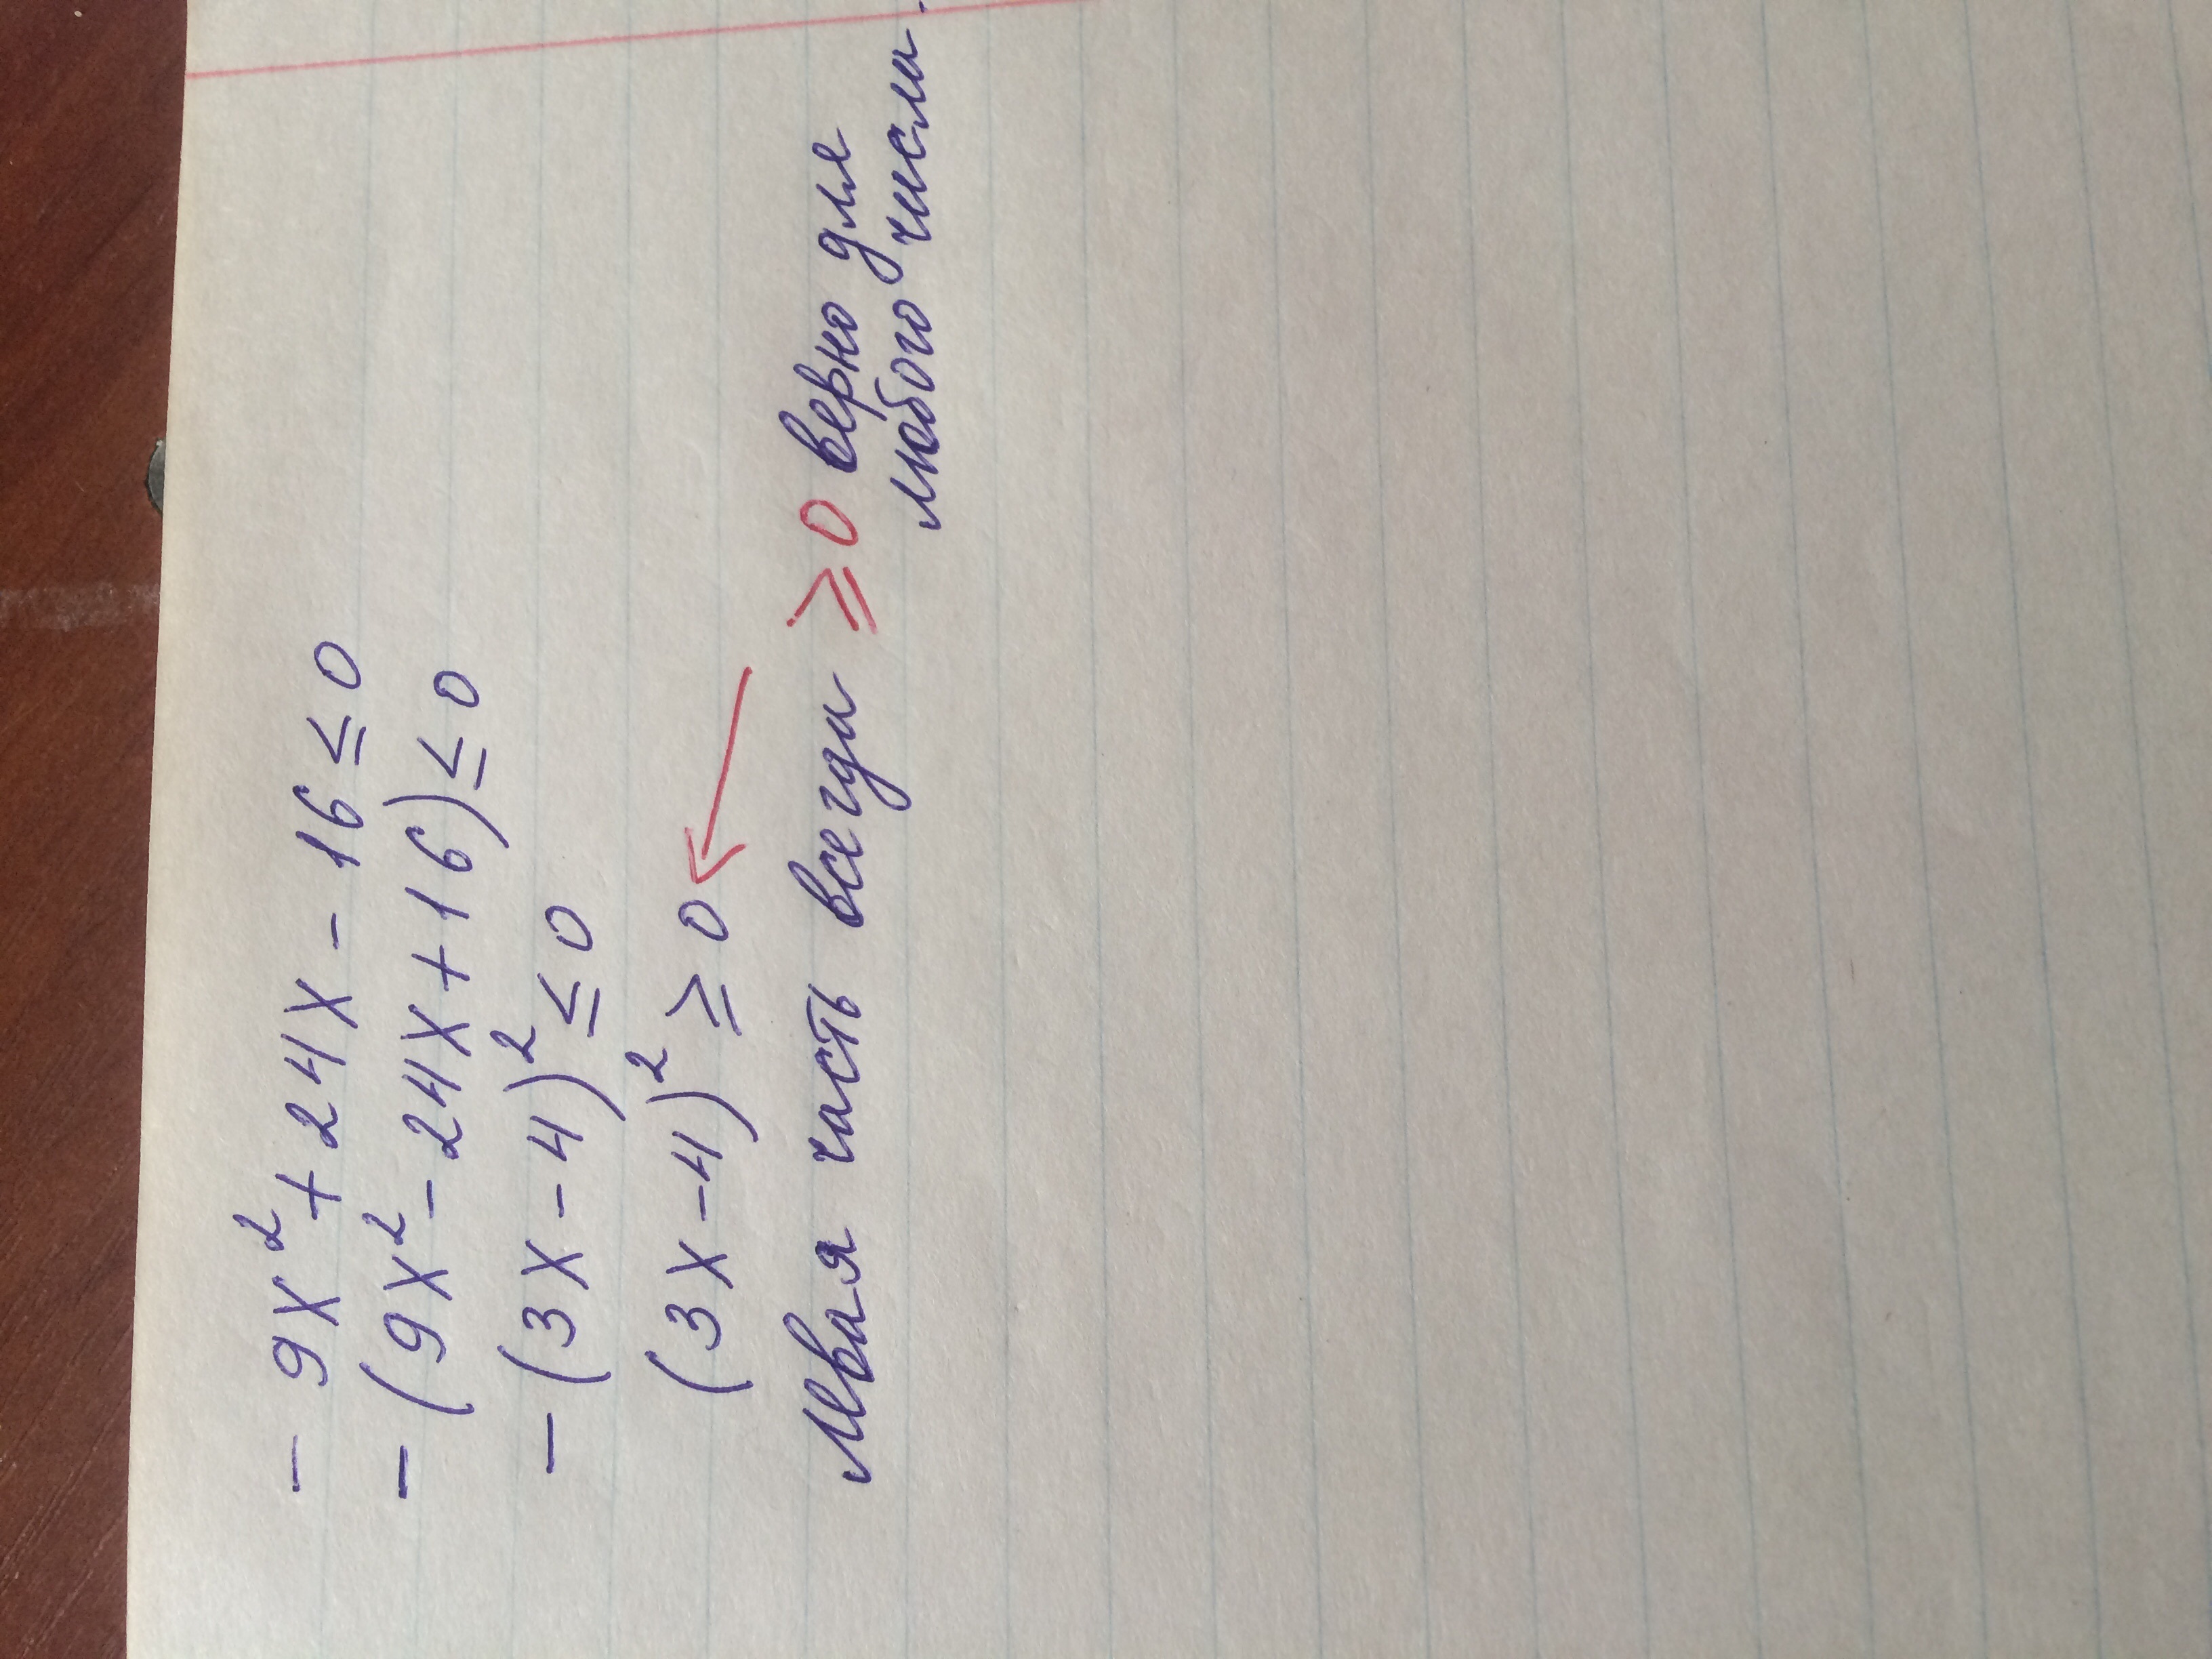 - 9x² + 24x - 16 ≤ 0
- (9x² - 24x + 16) ≤ 0
- (3x - 4)² ≤ 0
(3x - 4)² ≥ 0
Левая часть всегда ≥ 0 верно для
любого числа.